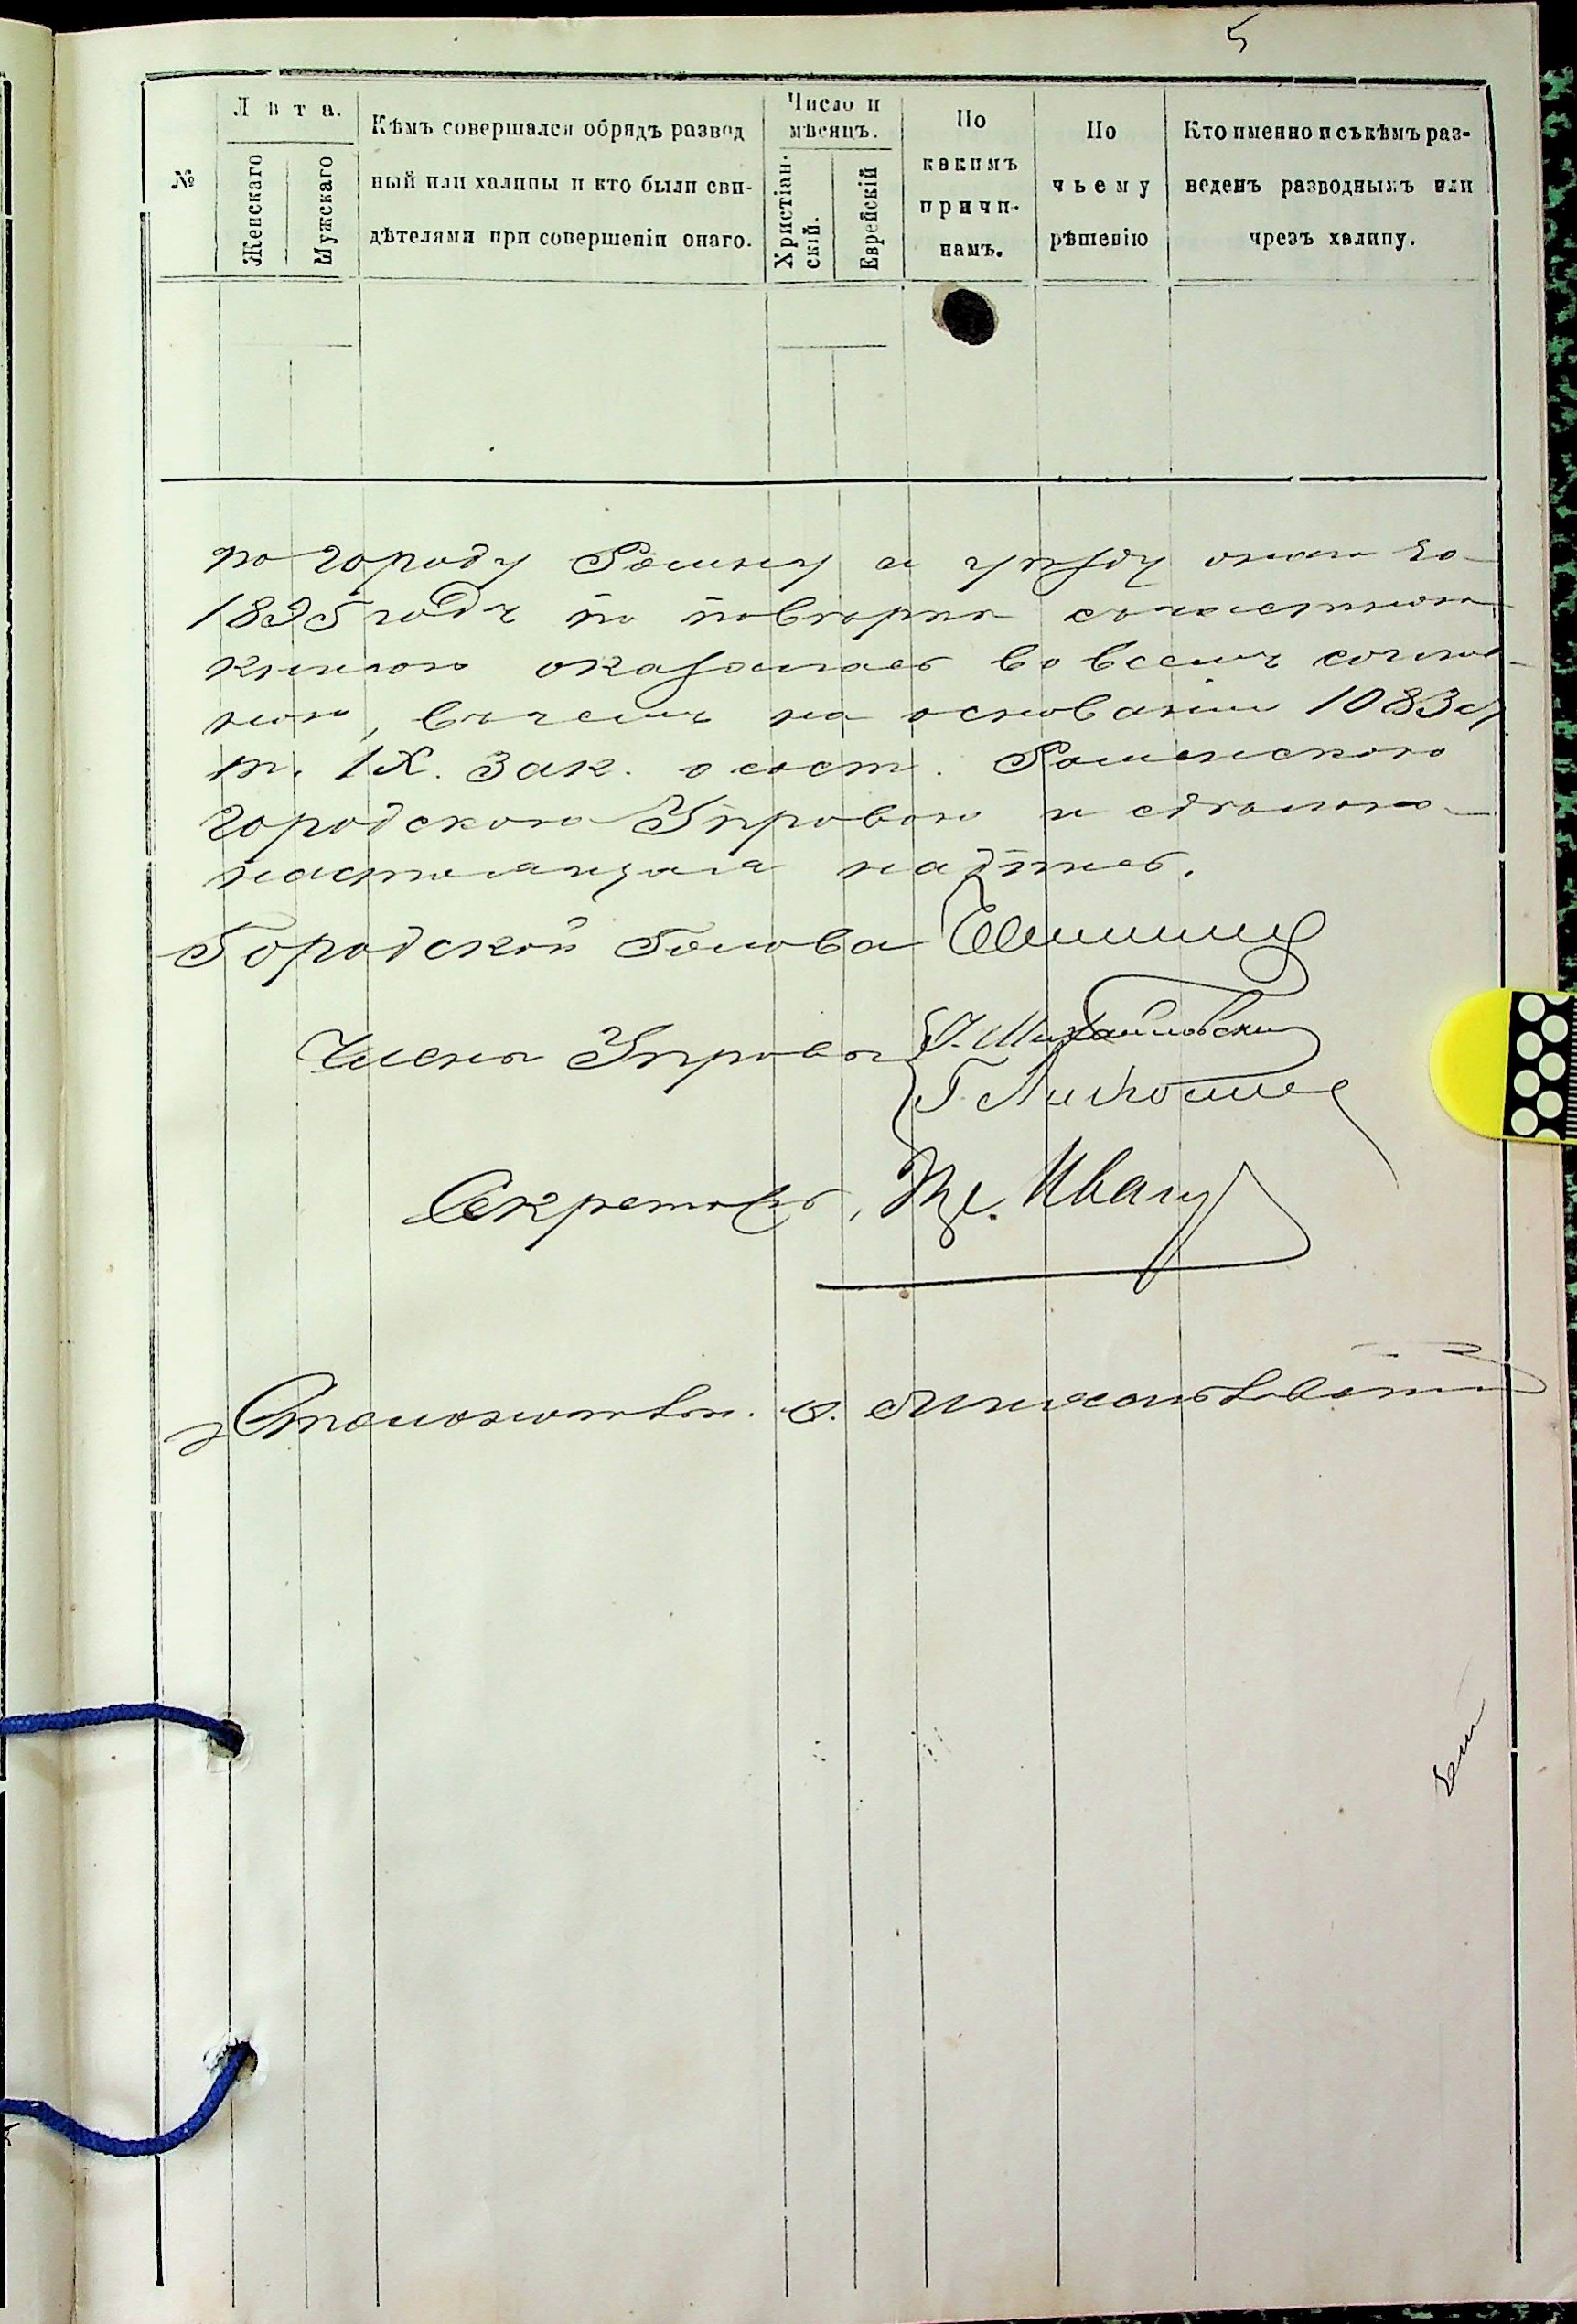 5
№
Лѣта.
Женскаго
Мужскаго
Кѣмъ совершался обрядъ развод
ный или халицы и кто были сви-
дѣтелями при совершеніи онаго.
Число и
мѣсяцъ.
Христіан-
скій.
Еврейскій
По
какимъ
причи-
намъ.
По
чьему
рѣшенію
Кто именно и съ кѣмъ раз-
веденъ разводнымъ или
чрезъ халицу.
по городу Ромну и уѣзду онаго за
1895 годъ по повѣркѣ
книгою оказалась во всемъ соглас-
ною, въ чемъ на основаніи 1083 ст
т. IX. Зак. о сост. Роменскою
городскою Управою и сдѣлана
настоящая надпись.
Городской Голова
Члены Управы
Михайловскій
Г.
Секретарь, Иванц